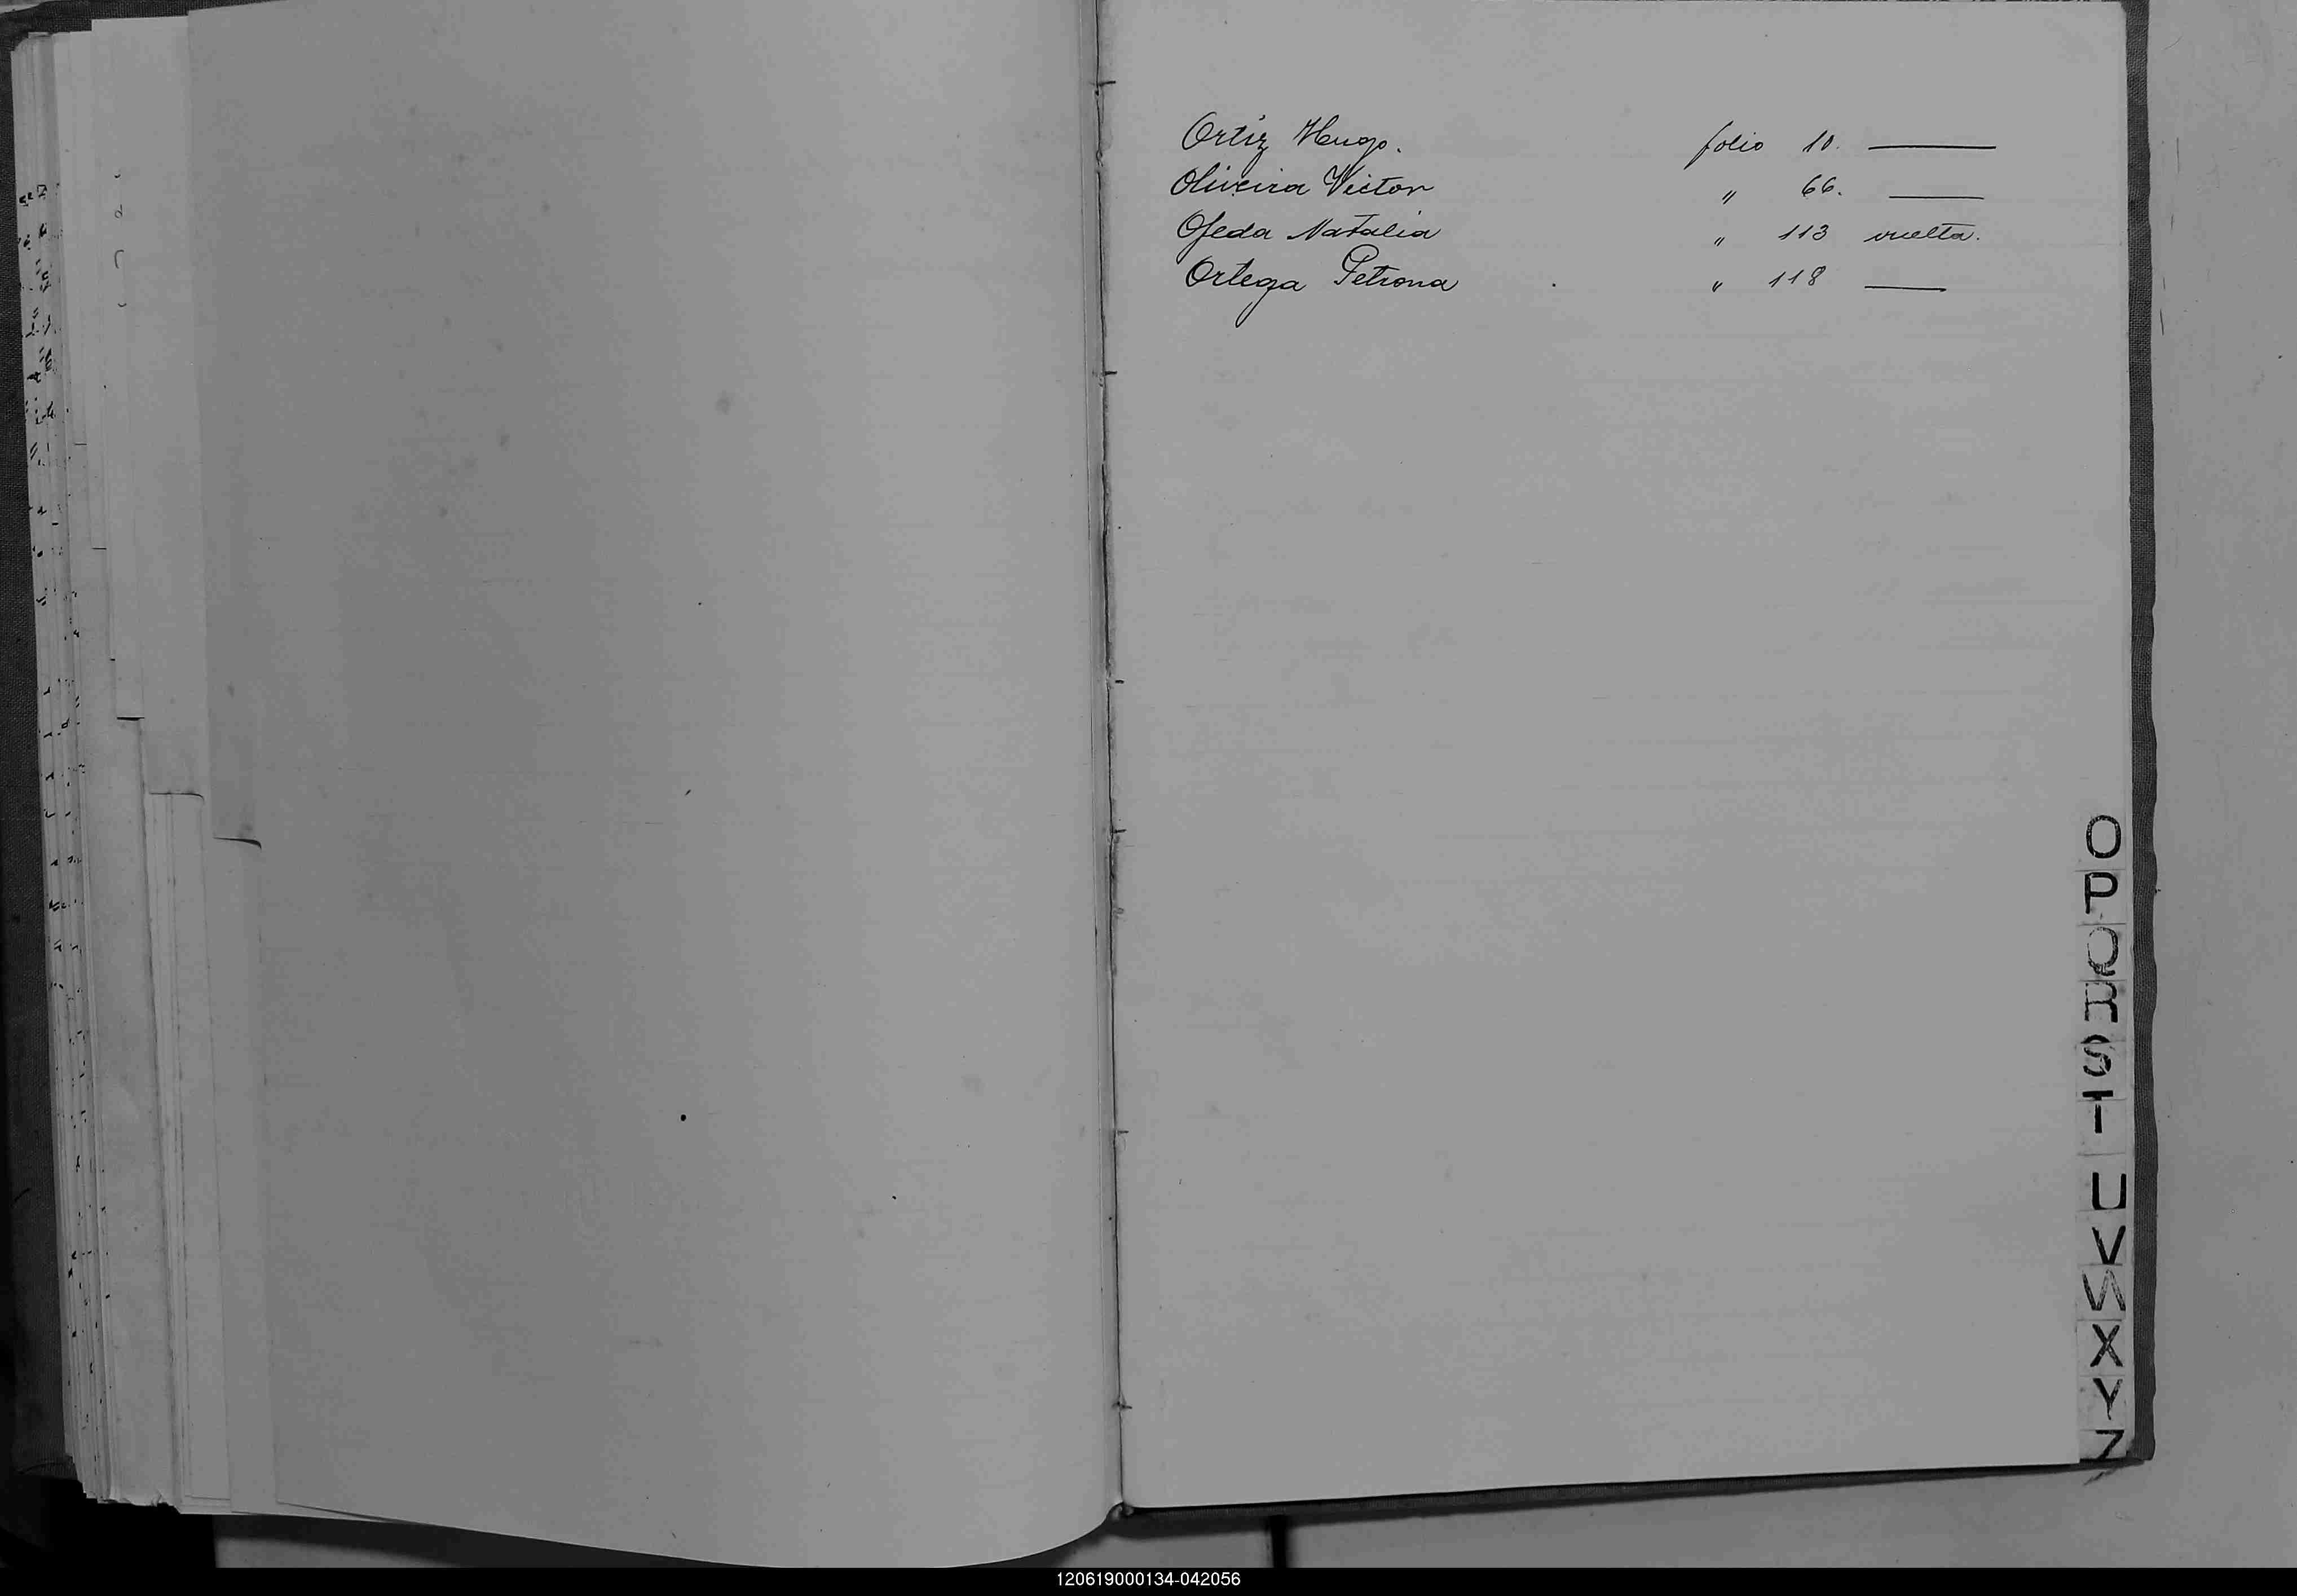 Ortiz Hugo. folio 10. ———
Oliveira Victor " 66. ———
Ojeda Natalia " 113 vuelta.
Ortega Petrona " 118 ———
O
P
Q
R
S
T
U
V
W
X
Y
Z
120619000134-042056